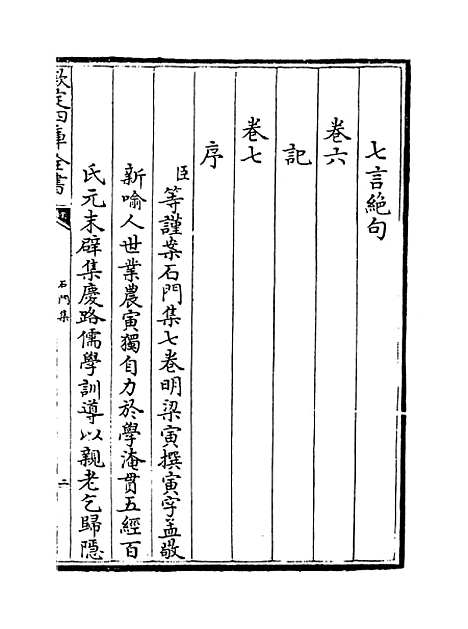 七言絶句
卷六
記
卷七
序
臣等謹案石門集七卷明梁寅撰寅字孟敬
新喻人世業農寅獨自力於學淹貫五經百
氏元末辟集慶路儒學訓導以親老乞歸隠
欽定四庫全書
石門集
二